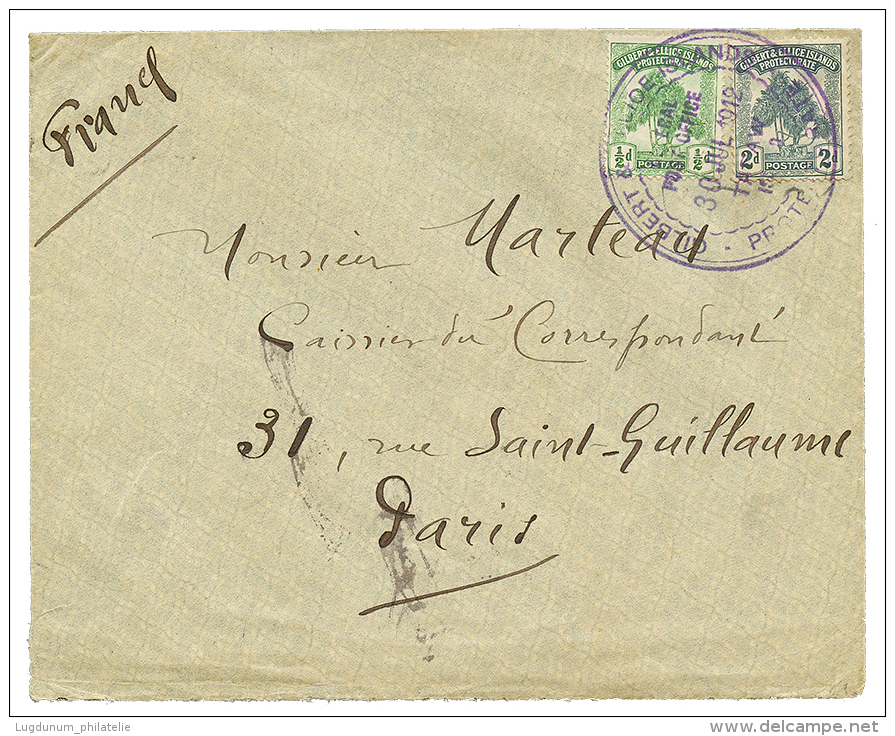 GILBERT & ELLICE ISLANDS
PROTECTORATE
½d POSTAGE ½d
GILBERT & ELLICE ISLANDS
PROTECTORATE
2d POSTAGE 2d
GILBERT & ISLANDS PROTE
POST OFFICE
30 JUL 1912
Monsieur Marteau
Caissier du Correspondant
31, rue Saint-Guillaume
Paris
Lugdunum_philatelie
www.delcampe.net